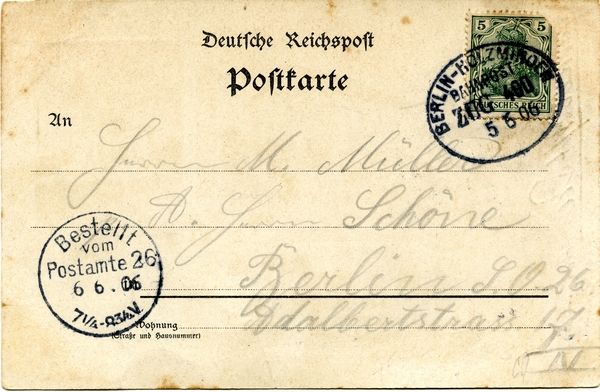 Deutsche Reichspost
Postkarte
5 5
DEUTSCHES REICH
BERLIN-HOLZMINDEN
BAHNPOST
ZUG 400
5 6 06
An
Herrn M. Müller
A. Herrn Schöne
Berlin S.O. 26
Adalbertstrass 7
IV
Bestellt
vom
Postamte 26
6 6. 06
7¼-8¾V
Wohnung
(Straße und Hausnummer)